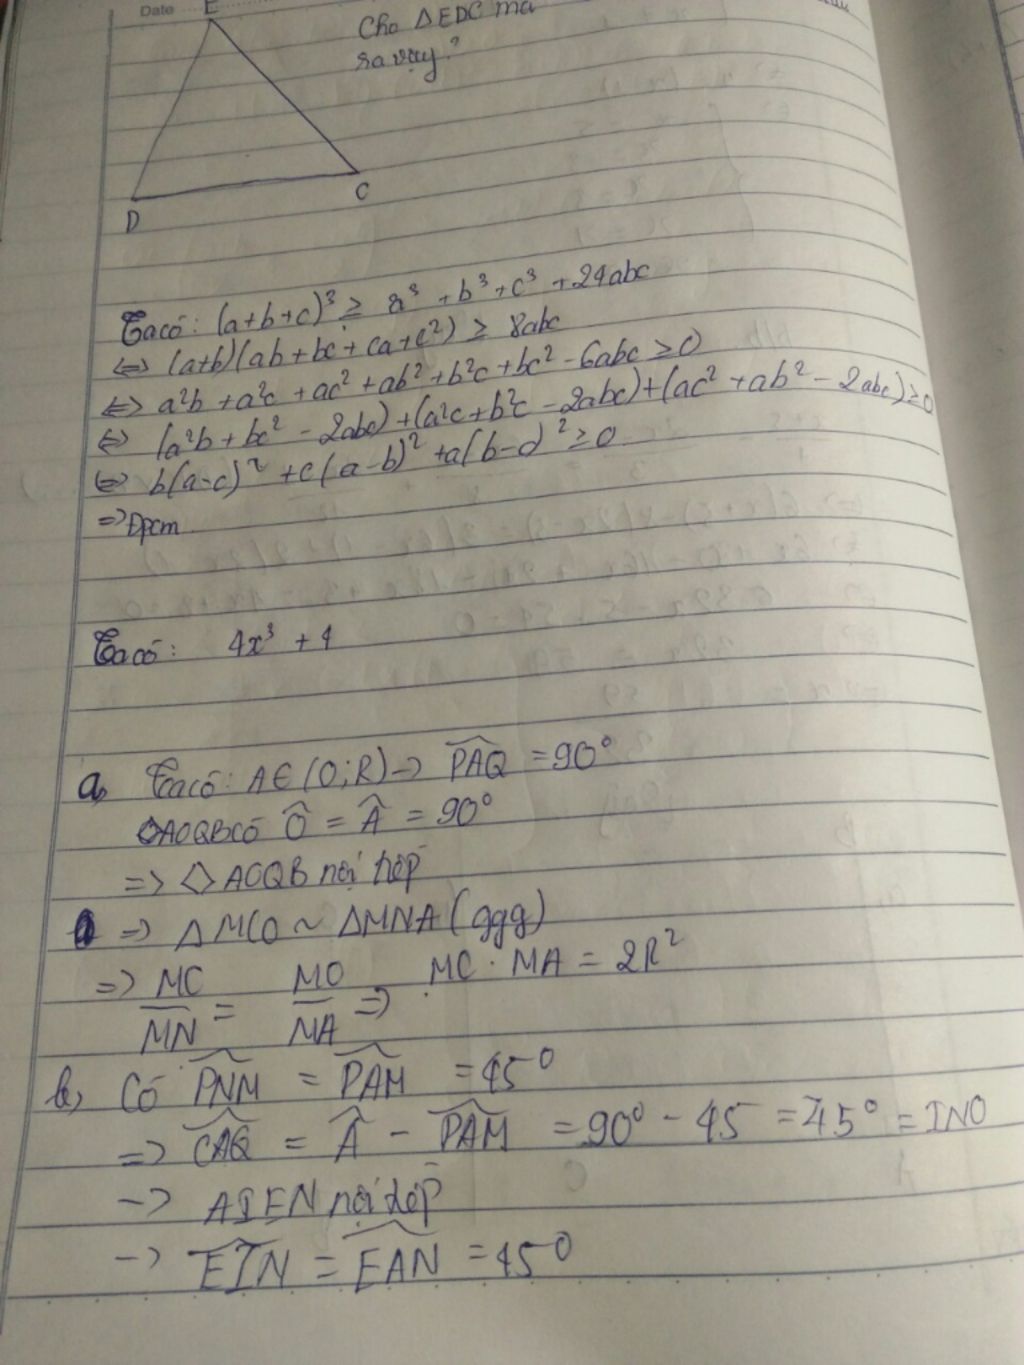 Date
E
Cho ΔEDC mà
ra vậy?
D
C
Ta có: (a+b+c)³ ≥ a³ + b³ + c³ + 24abc
⇔ (a+b)(ab+bc+ca+c²) ≥ 8abc
⇔ a²b + a²c + ac² + ab² + b²c + bc² - 6abc ≥ 0
⇔ (a²b + bc² - 2abc) + (a²c + b²c - 2abc) + (ac² + ab² - 2abc) ≥ 0
⇔ b(a-c)² + c(a-b)² + a(b-c)² ≥ 0
⇒ Đpcm
Ta có: 4x³ + 4
a, Ta có: A∈(O;R) → PAQ = 90°
◇AOQB có Ô = Â = 90°
=> ◇AOQB nội tiếp
=> ΔMCO ~ ΔMNA (ggg)
=> MC/MN = MO/MA => MC . MA = 2R²
b, Có PNM = PAM = 45°
=> CAQ = Â - PAM = 90° - 45 = 45° = INO
-> AIEN nội tiếp
-> EIN = EAN = 45°